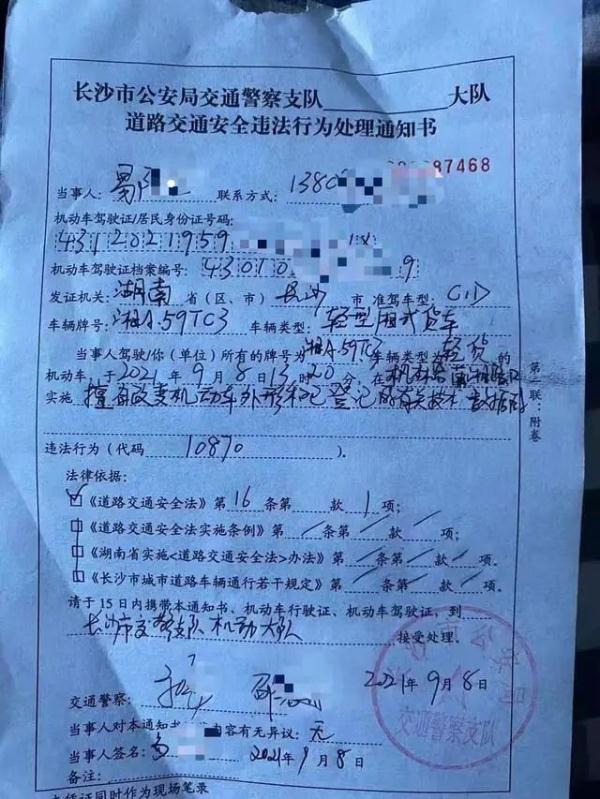 长沙市公安局交通警察支队________大队
道路交通安全违法行为处理通知书
87468
当事人: 鄢 联系方式: 1380
机动车驾驶证/居民身份证号码:
4312021959 1X
机动车驾驶证档案编号: 43010 9
发证机关: 湖南 省(区、市) 长沙 市 准驾车型: C1D
车辆牌号: 湘A·59TC3 车辆类型: 轻型厢式货车
当事人驾驶/你(单位)所有的牌号为 湘A·59TC3 车辆类型为 轻货 的
机动车,于 2021 年 9 月 8 日 13 时 20 分,在
实施 擅自改变机动车外形和已登记的有关技术数据的
违法行为(代码 10870 ).
法律依据:
《道路交通安全法》第 16 条第 款 1 项;
《道路交通安全法实施条例》第 / 条第 / 款 / 项;
《湖南省实施<道路交通安全法>办法》第 / 条第 / 款 / 项;
《长沙市城市道路车辆通行若干规定》第 / 条第 / 款 / 项;
请于15日内携带本通知书、机动车行驶证、机动车驾驶证,到
长沙市交警支队机动大队 接受处理。
交通警察: 2021年9月8日
交通警察支队
当事人对本通知书 内容有无异议: 无
当事人签名: 2021年9月8日
备注:
本凭证同时作为现场笔录
第二联:附卷